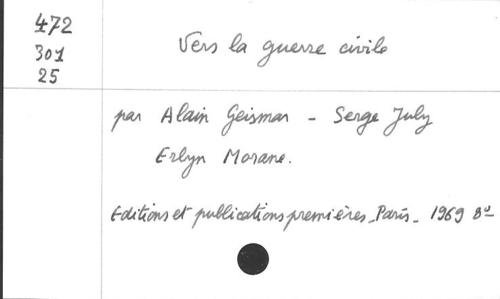 472
301
25
Vers la guerre civile
par Alain Geismar - Serge July
Erlyn Morane.
Editions et publications premières - Paris - 1969 8º